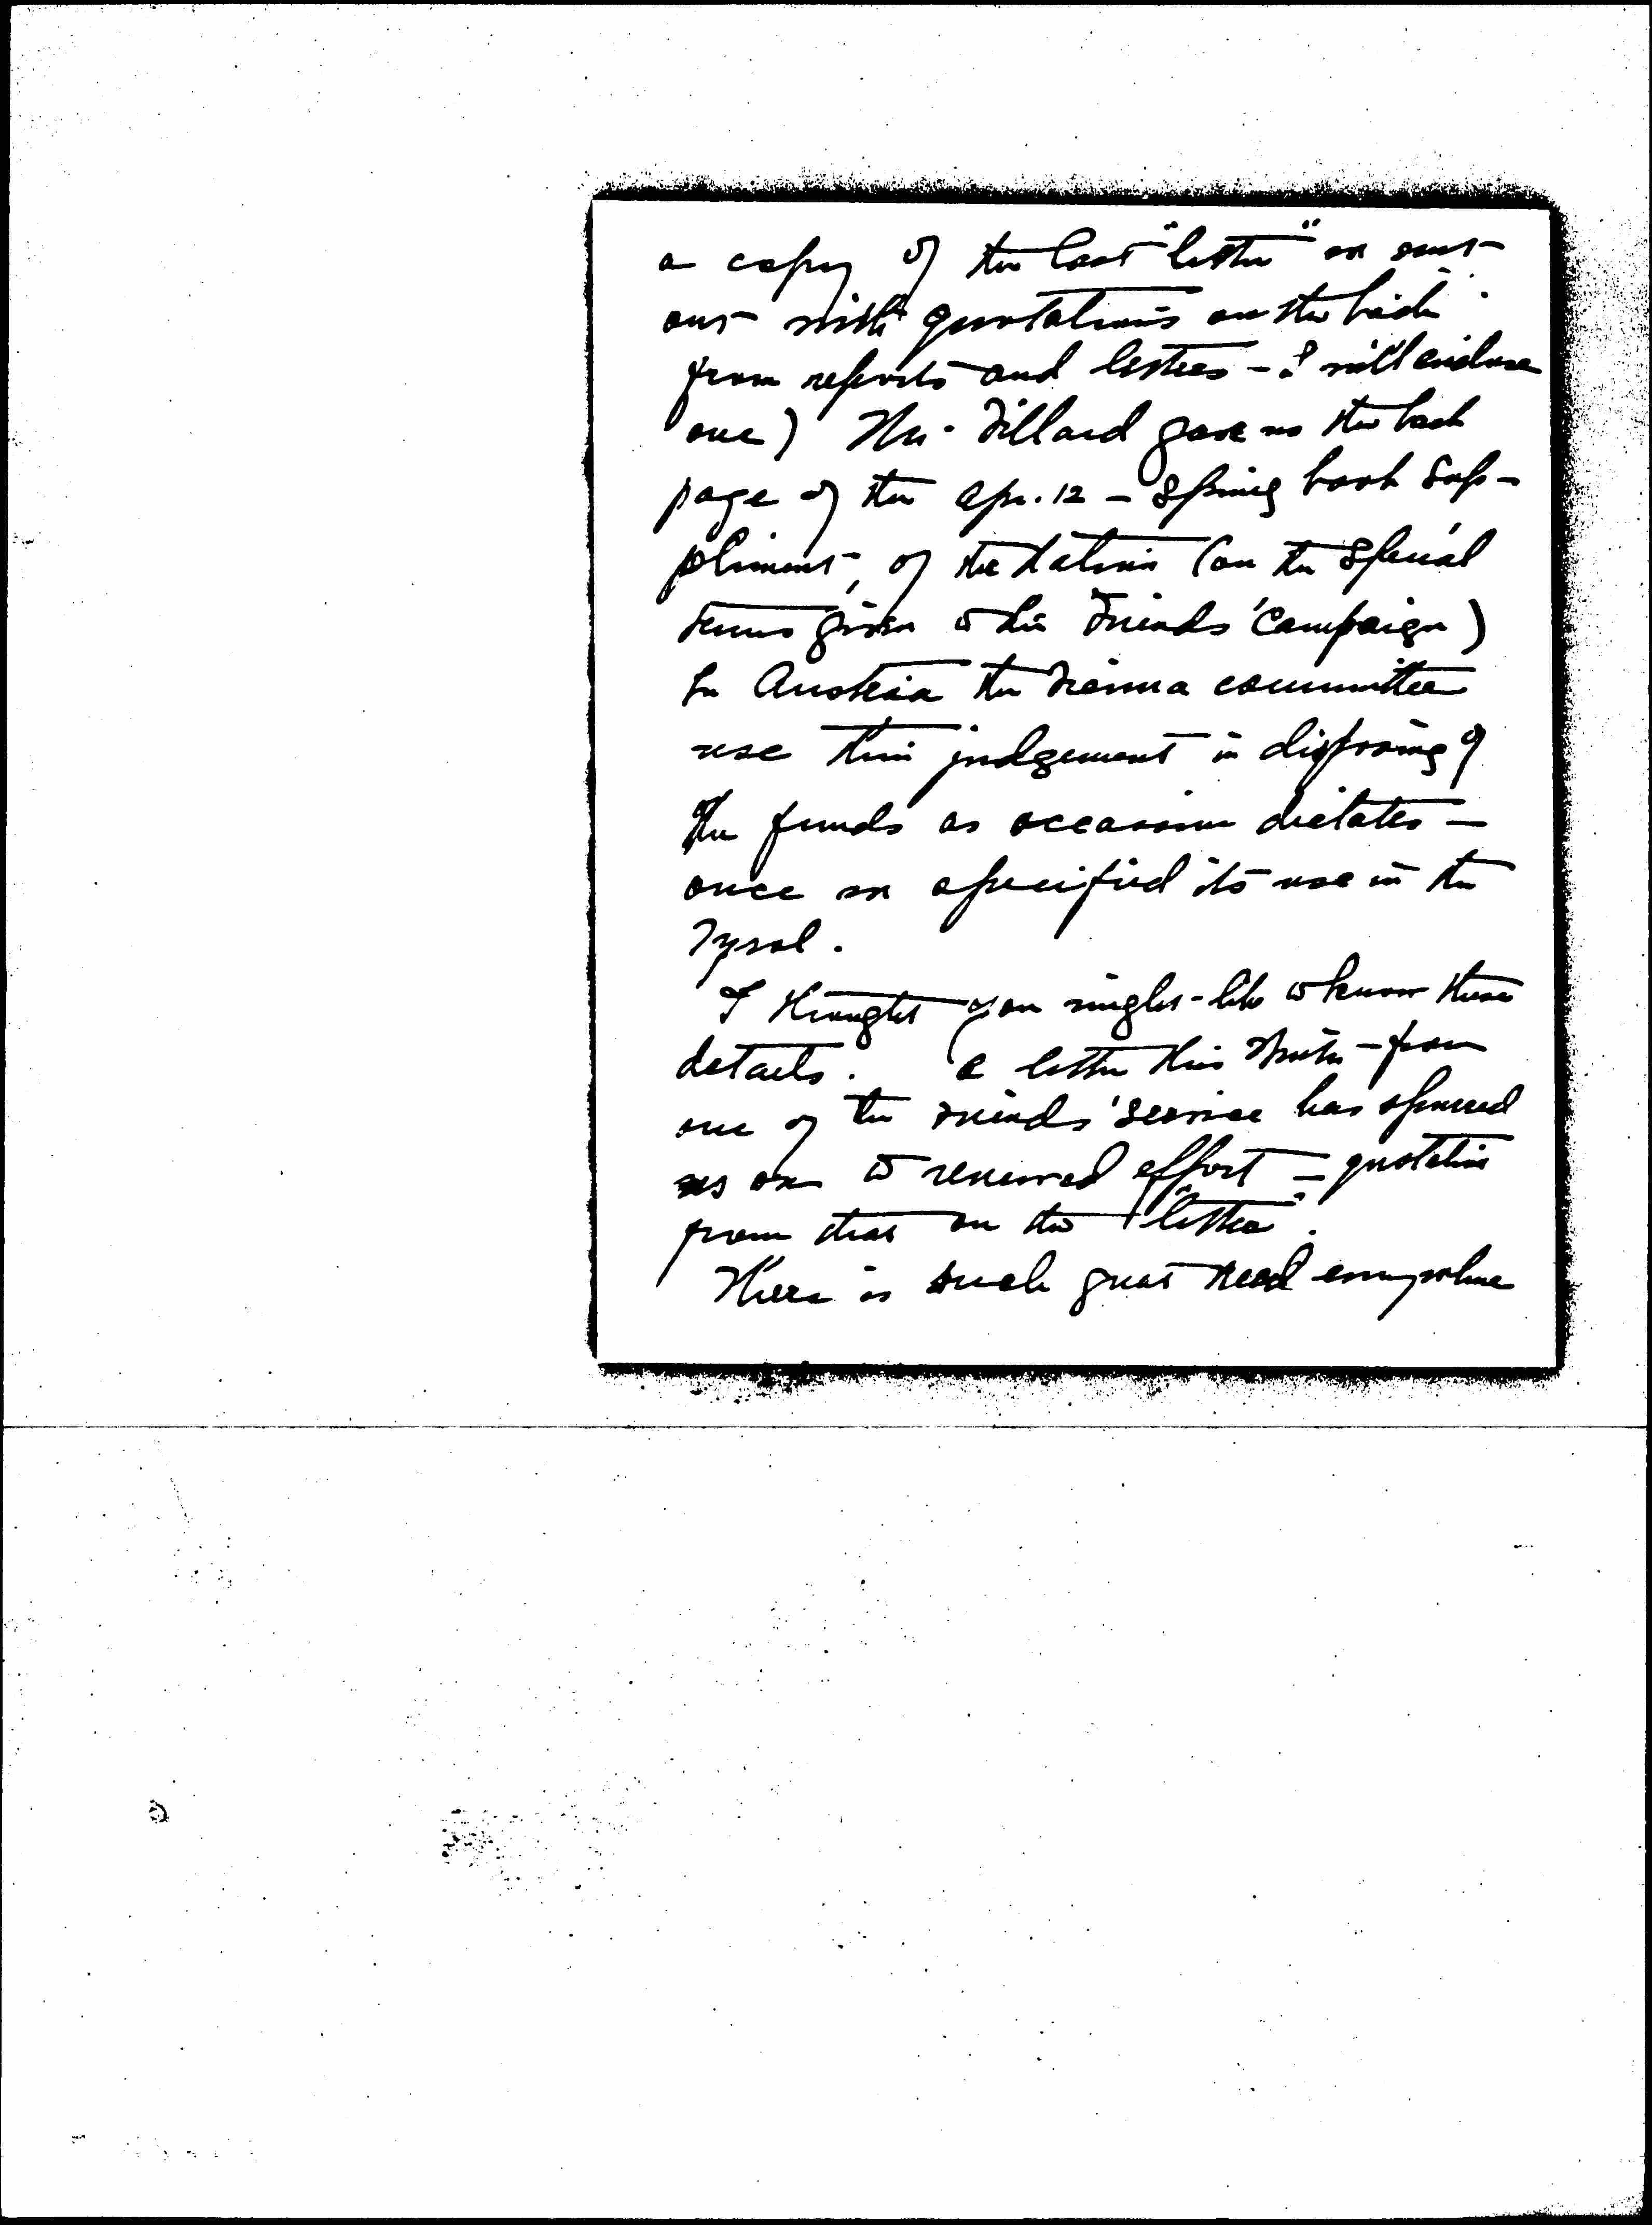 a copy of the last "letter" we sent
out with quotations on the back
from reports and letters - I will enclose
one) Mr. Villard gave us the back
page of the Apr. 12 - Spring book Sup-
pliment, of the Nation (on the special
terms given to the Friends' Campaign)
In Austria the Vienna committee
use their judgement in disposing of
the funds as occasion dictates -
once we specified its use in the
Tyrol.
I thought you might like to know these
details. A letter this from
one of the Friends' Service has spurred
us on to renewed effort - quotation
from that on the "letter".
There is such great need everywhere